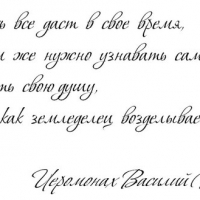 ь все даст в свое время,
и же нужно узнавать сам
ть свою душу,
как земледелец возделывае
Иеромонах Василий (